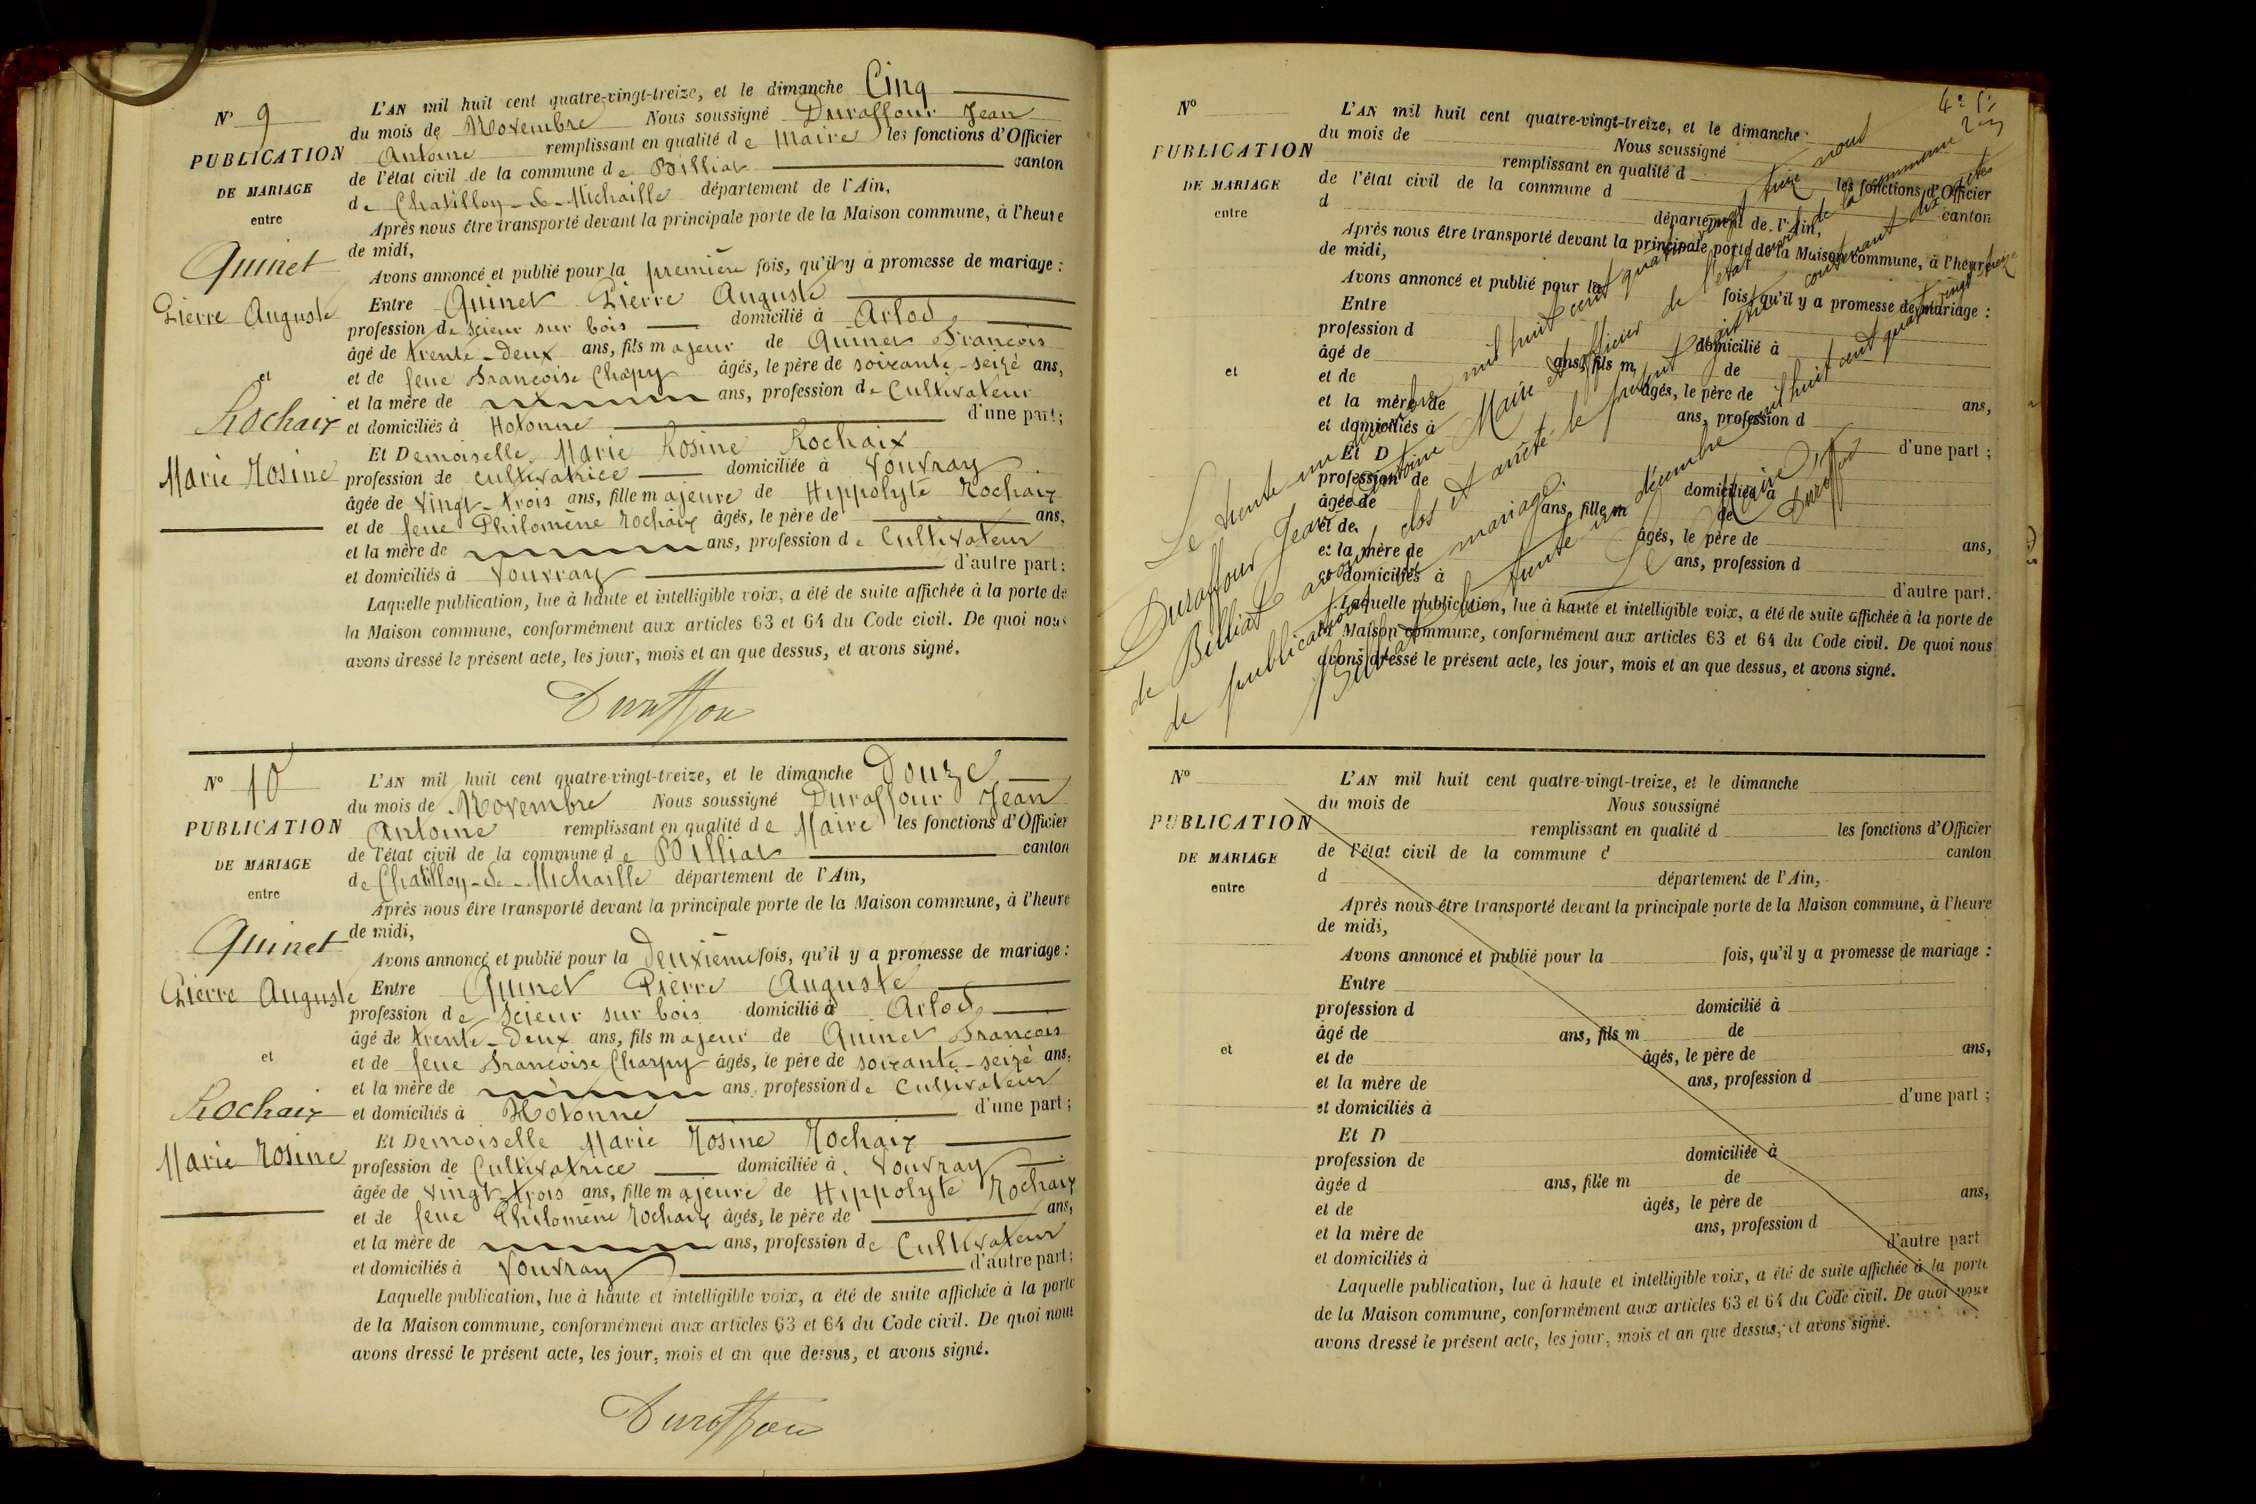 N° 9
PUBLICATION
DE MARIAGE
entre
Quinet
Pierre Auguste
et
Rochaix
Marie Rosine
L'AN mil huit cent quatre-vingt-treize, et le dimanche Cinq
du mois de Novembre Nous soussigné Duraffour Jean
Antoine remplissant en qualité de Maire les fonctions d'Officier
de l'état civil de la commune de Billiat canton
de Chatillon-de-Michaille département de l'Ain,
Après nous être transporté devant la principale porte de la Maison commune, à l'heure
de midi,
Avons annoncé et publié pour la première fois, qu'il y a promesse de mariage :
Entre Quinet Pierre Auguste
profession de scieur sur bois domicilié à Arlod
âgé de trente-deux ans, fils majeur de Quinet François
et de feue Françoise Charpy âgés, le père de soixante-seize ans,
et la mère de ans, profession de Cultivateur
et domiciliés à Hotonne d'une part ;
Et Demoiselle Marie Rosine Rochaix
profession de cultivatrice domiciliée à Vouvray
âgée de vingt-trois ans, fille majeure de Hippolyte Rochaix
et de feue Philomène Rochaix âgés, le père de ans,
et la mère de ans, profession de Cultivateur
et domiciliés à Vouvray d'autre part ;
Laquelle publication, lue à haute et intelligible voix, a été de suite affichée à la porte de
la Maison commune, conformément aux articles 63 et 64 du Code civil. De quoi nous
avons dressé le présent acte, les jour, mois et an que dessus, et avons signé.
Duraffour
N° 10
PUBLICATION
DE MARIAGE
entre
Quinet
Pierre Auguste
et
Rochaix
Marie Rosine
L'AN mil huit cent quatre-vingt-treize, et le dimanche Douze
du mois de Novembre Nous soussigné Duraffour Jean
Antoine remplissant en qualité de Maire les fonctions d'Officier
de l'état civil de la commune de Billiat canton
de Chatillon-de-Michaille département de l'Ain,
Après nous être transporté devant la principale porte de la Maison commune, à l'heure
de midi,
Avons annoncé et publié pour la deuxième fois, qu'il y a promesse de mariage :
Entre Quinet Pierre Auguste
profession de scieur sur bois domicilié à Arlod
âgé de trente-deux ans, fils majeur de Quinet François
et de feue Françoise Charpy âgés, le père de soixante-seize ans,
et la mère de ans, profession de Cultivateur
et domiciliés à Hotonne d'une part ;
Et Demoiselle Marie Rosine Rochaix
profession de Cultivatrice domiciliée à Vouvray
âgée de vingt-trois ans, fille majeure de Hippolyte Rochaix
et de feue Philomène Rochaix âgés, le père de ans,
et la mère de ans, profession de Cultivateur
et domiciliés à Vouvray d'autre part ;
Laquelle publication, lue à haute et intelligible voix, a été de suite affichée à la porte
de la Maison commune, conformément aux articles 63 et 64 du Code civil. De quoi nous
avons dressé le présent acte, les jour, mois et an que dessus, et avons signé.
Duraffour
N°
PUBLICATION
DE MARIAGE
entre
et
L'AN mil huit cent quatre-vingt-treize, et le dimanche
du mois de Nous soussigné
remplissant en qualité d les fonctions d'Officier
de l'état civil de la commune d canton
d département de l'Ain,
Après nous être transporté devant la principale porte de la Maison commune, à l'heure
de midi,
Avons annoncé et publié pour la fois, qu'il y a promesse de mariage :
Entre
profession d domicilié à
âgé de ans, fils m de
et de âgés, le père de ans,
et la mère de ans, profession d
et domiciliés à d'une part ;
Et D
profession de domiciliée à
âgée de ans, fille m de
et de âgés, le père de ans,
et la mère de ans, profession d
et domiciliés à d'autre part.
Laquelle publication, lue à haute et intelligible voix, a été de suite affichée à la porte de
la Maison commune, conformément aux articles 63 et 64 du Code civil. De quoi nous
avons dressé le présent acte, les jour, mois et an que dessus, et avons signé.
Le trente un décembre mil huit cent quatre vingt treize nous
Duraffour Jean Antoine Maire et officier de l'état civil de la commune
de Billiat avons clos et arrêté le présent registre contenant dix actes
de publications de mariage.
Billiat le trente un décembre mil huit cent quatre vingt treize
Le Maire,
Duraffour
N°
PUBLICATION
DE MARIAGE
entre
et
L'AN mil huit cent quatre-vingt-treize, et le dimanche
du mois de Nous soussigné
remplissant en qualité d les fonctions d'Officier
de l'état civil de la commune d canton
d département de l'Ain,
Après nous être transporté devant la principale porte de la Maison commune, à l'heure
de midi,
Avons annoncé et publié pour la fois, qu'il y a promesse de mariage :
Entre
profession d domicilié à
âgé de ans, fils m de
et de âgés, le père de ans,
et la mère de ans, profession d
et domiciliés à d'une part ;
Et D
profession de domiciliée à
âgée d ans, fille m de
et de âgés, le père de ans,
et la mère de ans, profession d
et domiciliés à d'autre part
Laquelle publication, lue à haute et intelligible voix, a été de suite affichée à la porte
de la Maison commune, conformément aux articles 63 et 64 du Code civil. De quoi nous
avons dressé le présent acte, les jour, mois et an que dessus, et avons signé.